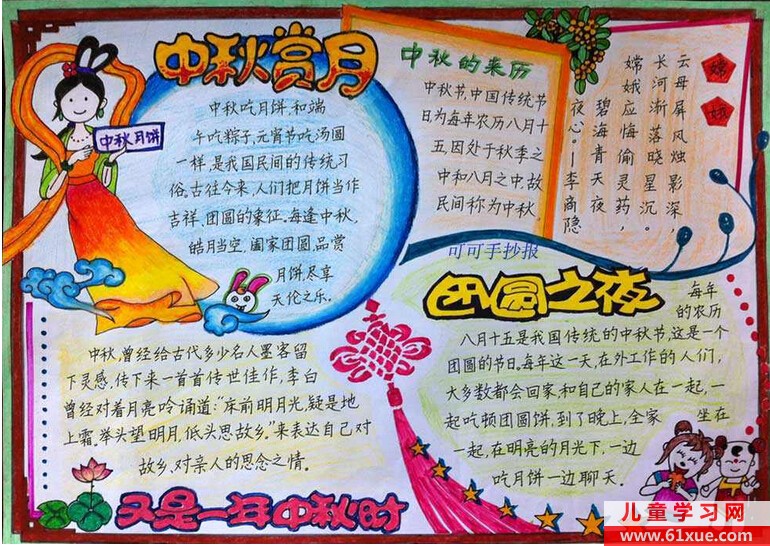 中秋赏月
中秋月饼
中秋吃月饼,和端
午吃粽子,元宵节吃汤圆
一样,是我国民间的传统习
俗。古往今来,人们把月饼当作
吉祥、团圆的象征。每逢中秋,
皓月当空,阖家团圆,品赏
月饼,尽享
天伦之乐。
中秋的来历
中秋节,中国传统节
日为每年农历八月十
五,因处于秋季之
中和八月之中,故
民间称为中秋。
嫦娥
云母屏风烛影深,
长河渐落晓星沉。
嫦娥应悔偷灵药,
碧海青天夜
夜心。——李商隐
可可手抄报
团圆之夜
每年
的农历
八月十五是我国传统的中秋节,这是一个
团圆的节日,每年这一天,在外工作的人们,
大多数都会回家,和自己的家人在一起,一
起吃顿团圆饼,到了晚上,全家坐在
一起,在明亮的月光下,一边
吃月饼一边聊天。
中秋,曾经给古代多少名人墨客留
下灵感,传下来一首首传世佳作,李白
曾经对着月亮吟诵道:"床前明月光,疑是地
上霜,举头望明月,低头思故乡。"来表达自己对
故乡、对亲人的思念之情。
又是一年中秋时
儿童学习网
www.61xue.com